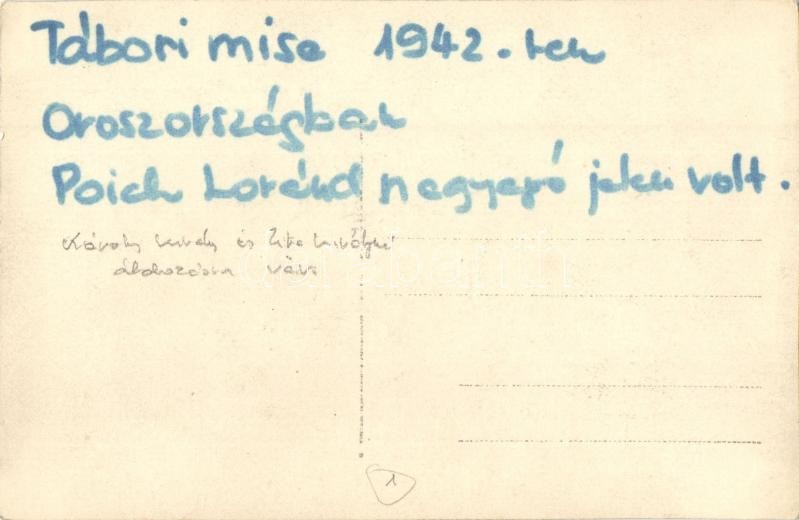 Tábori mise 1942.-ben
Oroszországban
Poich Loránd n.egyapó jelen volt.
Károly király és Zita királyné
áldozásra vár
darabanth
1